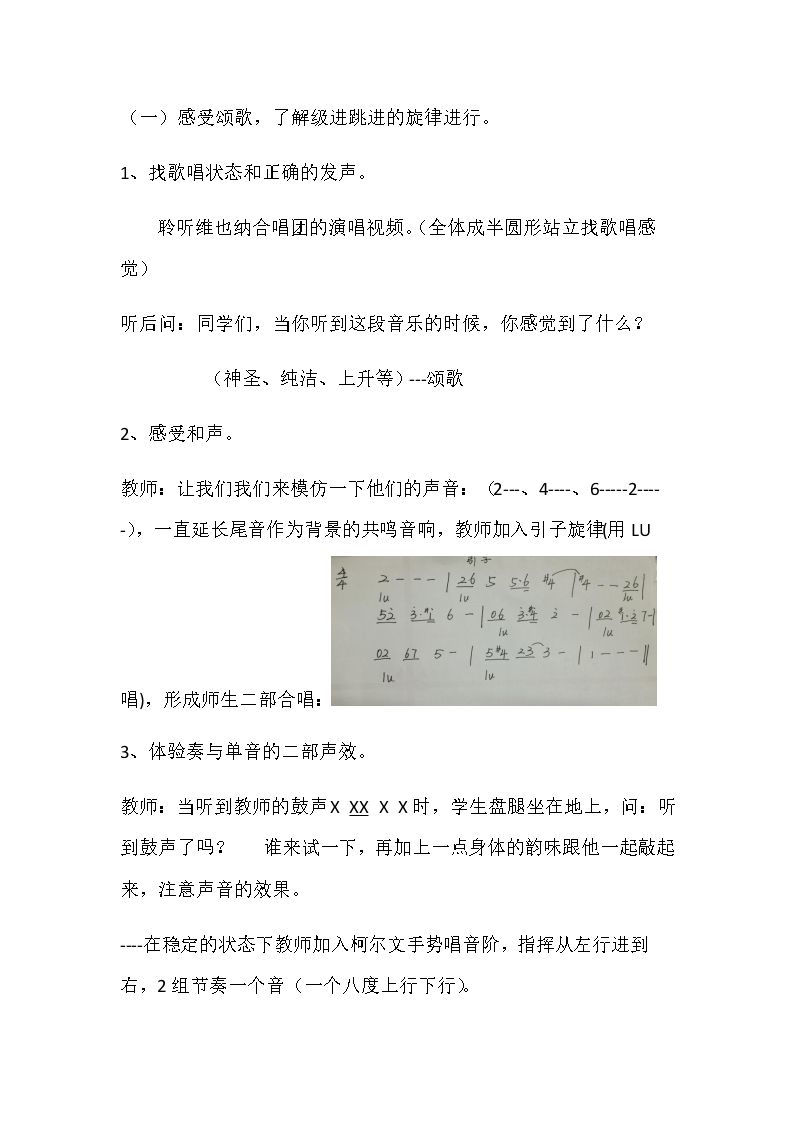 （一）感受颂歌，了解级进跳进的旋律进行。
1、找歌唱状态和正确的发声。
聆听维也纳合唱团的演唱视频。（全体成半圆形站立找歌唱感
觉）
听后问：同学们，当你听到这段音乐的时候，你感觉到了什么？
（神圣、纯洁、上升等）---颂歌
2、感受和声。
教师：让我们我们来模仿一下他们的声音：（2---、4----、6-----2----
-），一直延长尾音作为背景的共鸣音响，教师加入引子旋律(用 LU
引子
4/4 2 - - - | 26 5 5·6 #4 | #4 - - 26 |
lu lu lu
52 3·#1 6 - | 06 3·#4 2 - | 02 #1·2 7-|
lu lu
02 67 5 - | 5#4 23 3 - | 1 - - - ‖
lu lu
唱)，形成师生二部合唱：
3、体验奏与单音的二部声效。
教师：当听到教师的鼓声 X XX X X 时，学生盘腿坐在地上，问：听
到鼓声了吗？ 谁来试一下，再加上一点身体的韵味跟他一起敲起
来，注意声音的效果。
----在稳定的状态下教师加入柯尔文手势唱音阶，指挥从左行进到
右，2 组节奏一个音（一个八度上行下行）。